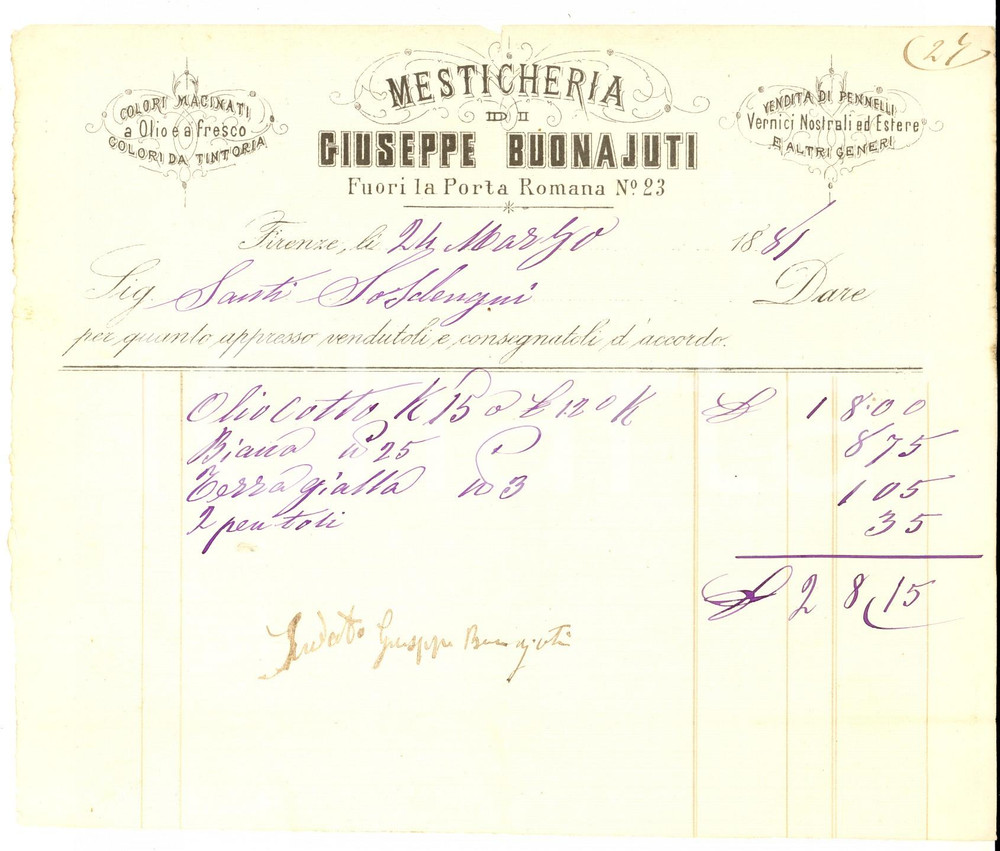 (27)
COLORI MACINATI
a Olio e a fresco
COLORI DA TINTORIA
MESTICHERIA
DI
GIUSEPPE BUONAJUTI
Fuori la Porta Romana Nº 23
VENDITA DI PENNELLI
Vernici Nostrali ed Estere
E ALTRI GENERI
Firenze, li 24 Marzo 1881
Sig. Santi Dare
per quanto appresso vendutoli e consegnatoli d'accordo.
Olio cotto K 15 a £ 120 K £ 18.00
Biacca 25 8 75
Terra gialla 3 1 05
2 pentoli 35
£ 28,15
Giuseppe Buonajuti